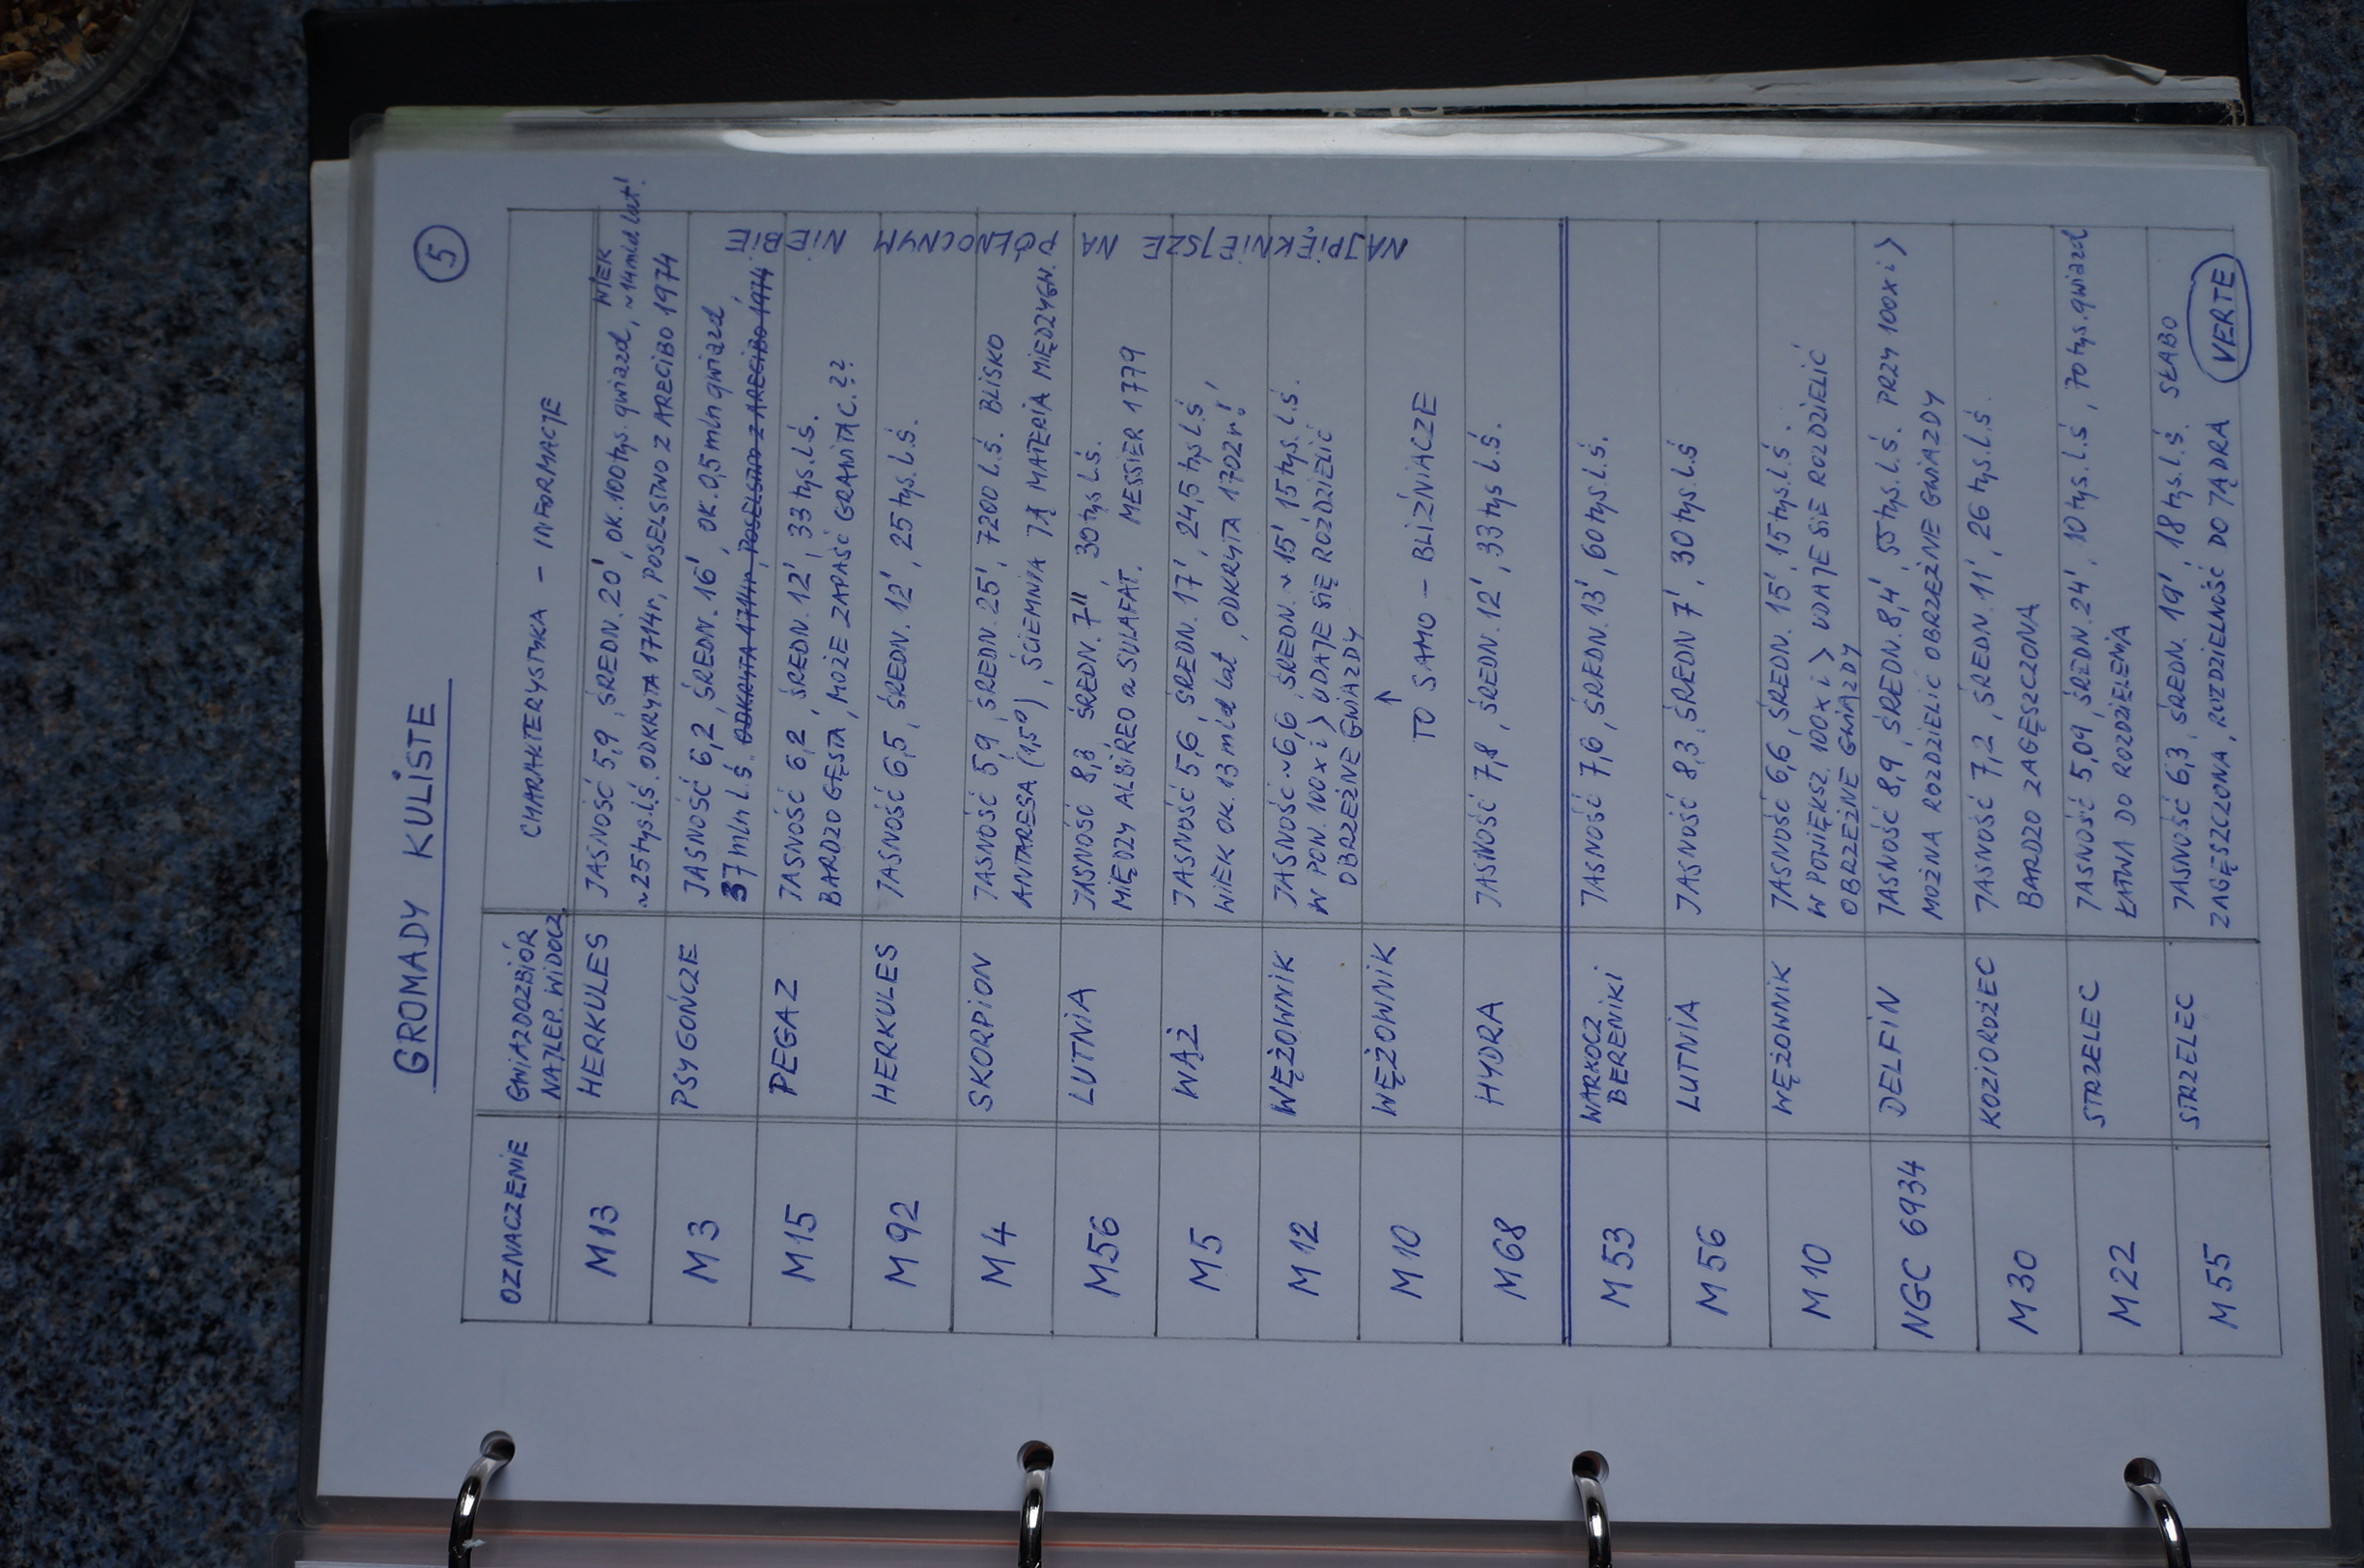 5
GROMADY KULISTE
OZNACZENIE
GWIAZDOZBIÓR
NAJLEP. WIDOCZ.
CHARAKTERYSTYKA – INFORMACJE
M13
HERKULES
JASNOŚĆ 5,9, ŚREDN. 20', OK. 100 tys. gwiazd, WIEK ~14 mld lat!
~25 tys. l.ś. ODKRYTA 1714r, POSELSTWO Z ARECIBO 1974
M 3
PSY GOŃCZE
JASNOŚĆ 6,2, ŚREDN. 16', OK. 0,5 mln gwiazd
37 mln l.ś. ODKRYTA 1714r, POSELSTWO Z ARECIBO 1974
M15
PEGAZ
JASNOŚĆ 6,2, ŚREDN. 12', 33 tys. l.ś.
BARDZO GĘSTA, MOŻE ZAPAŚĆ GRAWITAC.??
M 92
HERKULES
JASNOŚĆ 6,5, ŚREDN. 12', 25 tys. l.ś.
M 4
SKORPION
JASNOŚĆ 5,9, ŚREDN. 25', 7200 l.ś. BLISKO
ANTARESA (1,5°), ŚCIEMNIA JĄ MATERIA MIĘDZYGW.
M56
LUTNIA
JASNOŚĆ 8,3 ŚREDN. 7", 30 tys l.ś.
MIĘDZY ALBIREO a SULAFAT. MESSIER 1779
M 5
WĄŻ
JASNOŚĆ 5,6, ŚREDN. 17', 24,5 tys l.ś,
WIEK OK. 13 mld lat, ODKRYTA 1702r!
M 12
WĘŻOWNIK
JASNOŚĆ ~6,6, ŚREDN. ~15', 15 tys. l.ś.
W POW. 100x i > UDAJE SIĘ ROZDZIELIĆ
OBRZEŻNE GWIAZDY
M 10
WĘŻOWNIK
↑
TO SAMO – BLIŹNIACZE
M68
HYDRA
JASNOŚĆ 7,8, ŚREDN. 12', 33 tys l.ś.
NAJPIĘKNIEJSZE NA PÓŁNOCNYM NIEBIE
M 53
WARKOCZ
BERENIKI
JASNOŚĆ 7,6, ŚREDN. 13', 60 tys l.ś.
M 56
LUTNIA
JASNOŚĆ 8,3, ŚREDN 7', 30 tys l.ś
M 10
WĘŻOWNIK
JASNOŚĆ 6,6, ŚREDN. 15', 15 tys. l.ś.
W POWIĘKSZ. 100x i > UDAJE SIE ROZDZIELIĆ
OBRZEŻNE GWIAZDY
NGC 6934
DELFIN
JASNOŚĆ 8,9, ŚREDN. 8,4', 55 tys. l.ś. PRZY 100x i >
MOŻNA ROZDZIELIĆ OBRZEŻNE GWIAZDY
M 30
KOZIOROŻEC
JASNOŚĆ 7,2, ŚREDN. 11', 26 tys. l.ś.
BARDZO ZAGĘSZCZONA
M 22
STRZELEC
JASNOŚĆ 5,09, ŚREDN. 24', 10 tys. l.ś, 70 tys. gwiazd
ŁATWA DO ROZDZIELENIA
M 55
STRZELEC
JASNOŚĆ 6,3, ŚREDN. 19', 18 tys. l.ś. SŁABO
ZAGĘSZCZONA, ROZDZIELNOŚĆ DO JĄDRA
VERTE